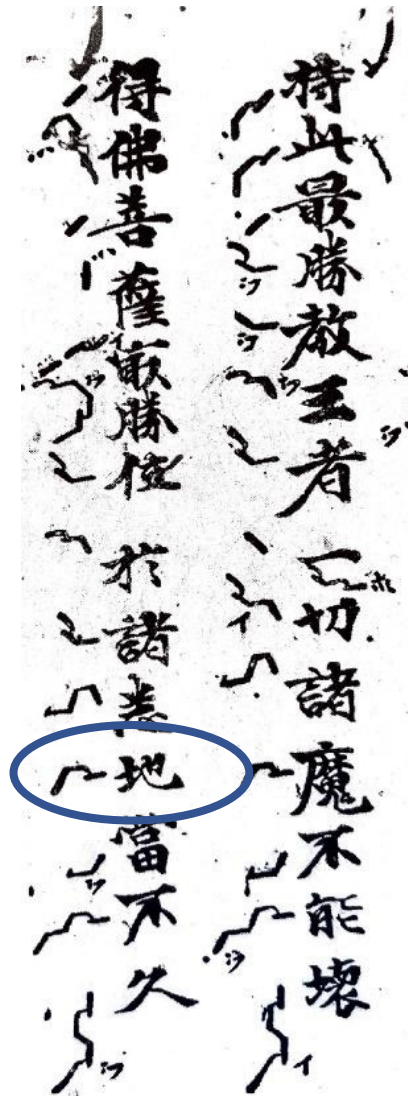 持此最勝教王者 一切諸魔不能壞
得佛菩薩最勝位 於諸悉地當不久